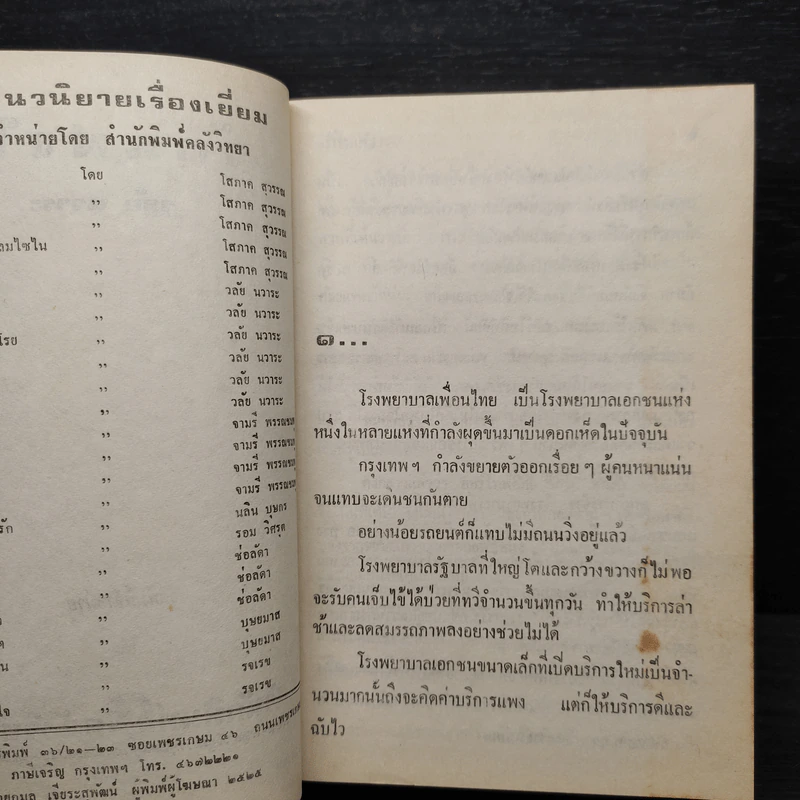 นวนิยายเรื่องเยี่ยม
จำหน่ายโดย สำนักพิมพ์คลังวิทยา
โดย โสภาค สุวรรณ
,, โสภาค สุวรรณ
,, โสภาค สุวรรณ
,, โสภาค สุวรรณ
,, โสภาค สุวรรณ
,, วลัย นวาระ
,, วลัย นวาระ
โรย ,, วลัย นวาระ
,, วลัย นวาระ
,, วลัย นวาระ
,, วลัย นวาระ
,, จามรี พรรณชมพู
,, จามรี พรรณชมพู
,, จามรี พรรณชมพู
,, จามรี พรรณชมพู
,, นลิน บุษกร
รัก ,, รอม วิศรุต
,, ช่อลัดา
,, ช่อลัดา
,, ช่อลัดา
,, บุษยมาส
,, บุษยมาส
,, รจเรข
,, รจเรข
พิมพ์ ๓๖/๒๑—๒๓ ซอยเพชรเกษม ๔๖ ถนนเพชรเกษม
ภาษีเจริญ กรุงเทพฯ โทร. ๔๖๗๒๒๒๑
เจียระสพัฒน์ ผู้พิมพ์ผู้โฆษณา ๒๕๒๕
๑...
โรงพยาบาลเพื่อนไทย เป็นโรงพยาบาลเอกชนแห่ง
หนึ่งในหลายแห่งที่กำลังผุดขึ้นมาเป็นดอกเห็ดในปัจจุบัน
กรุงเทพฯ กำลังขยายตัวออกเรื่อย ๆ ผู้คนหนาแน่น
จนแทบจะเดินชนกันตาย
อย่างน้อยรถยนต์ก็แทบไม่มีถนนวิ่งอยู่แล้ว
โรงพยาบาลรัฐบาลที่ใหญ่โตและกว้างขวางก็ไม่พอ
จะรับคนเจ็บไข้ได้ป่วยที่ทวีจำนวนขึ้นทุกวัน ทำให้บริการล่า
ช้าและลดสมรรถภาพลงอย่างช่วยไม่ได้
โรงพยาบาลเอกชนขนาดเล็กที่เปิดบริการใหม่เป็นจำ-
นวนมากนั้นถึงจะคิดค่าบริการแพง แต่ก็ให้บริการดีและ
ฉับไว